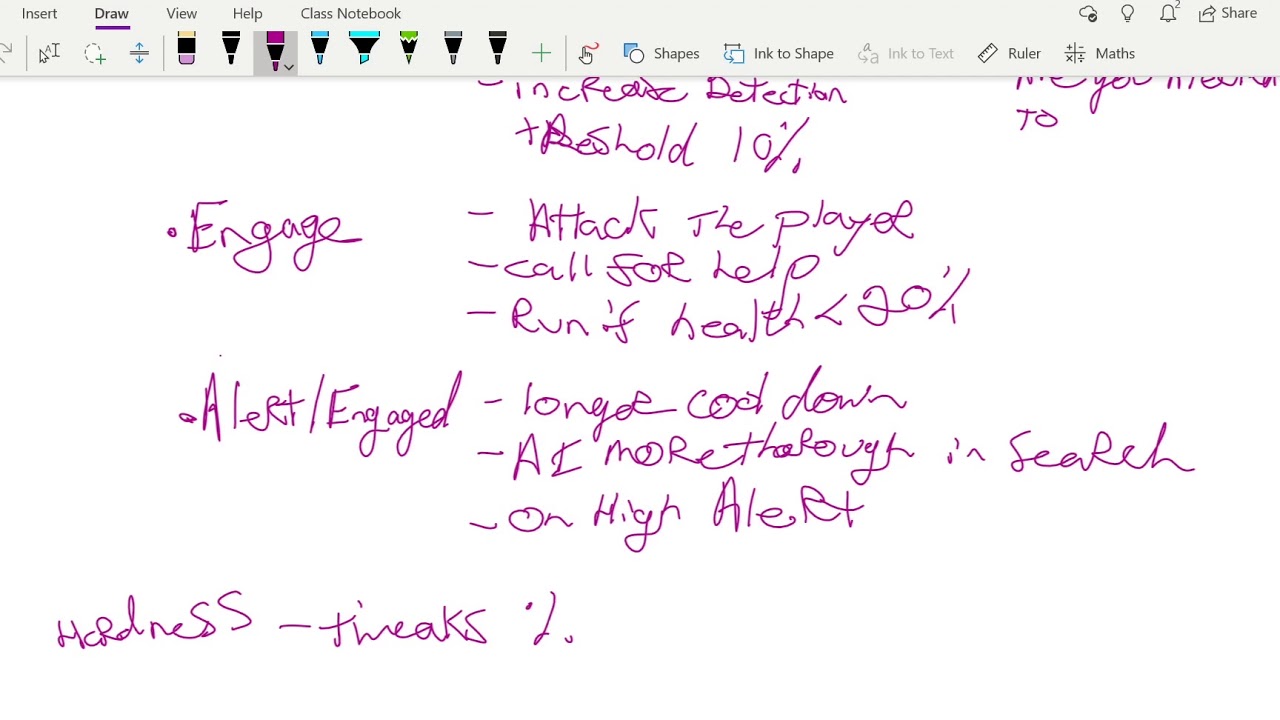 Insert Draw View Help Class Notebook 2 Share
Shapes Ink to Shape Ink to Text Ruler Maths
- increase Detection
threshold 10%
to
• Engage - Attack the player
- call for help
- Run if health < 20%
• Alert/Engaged - longer cool down
- AI more thorough in search
- on High Alert
Hardness - tweaks %